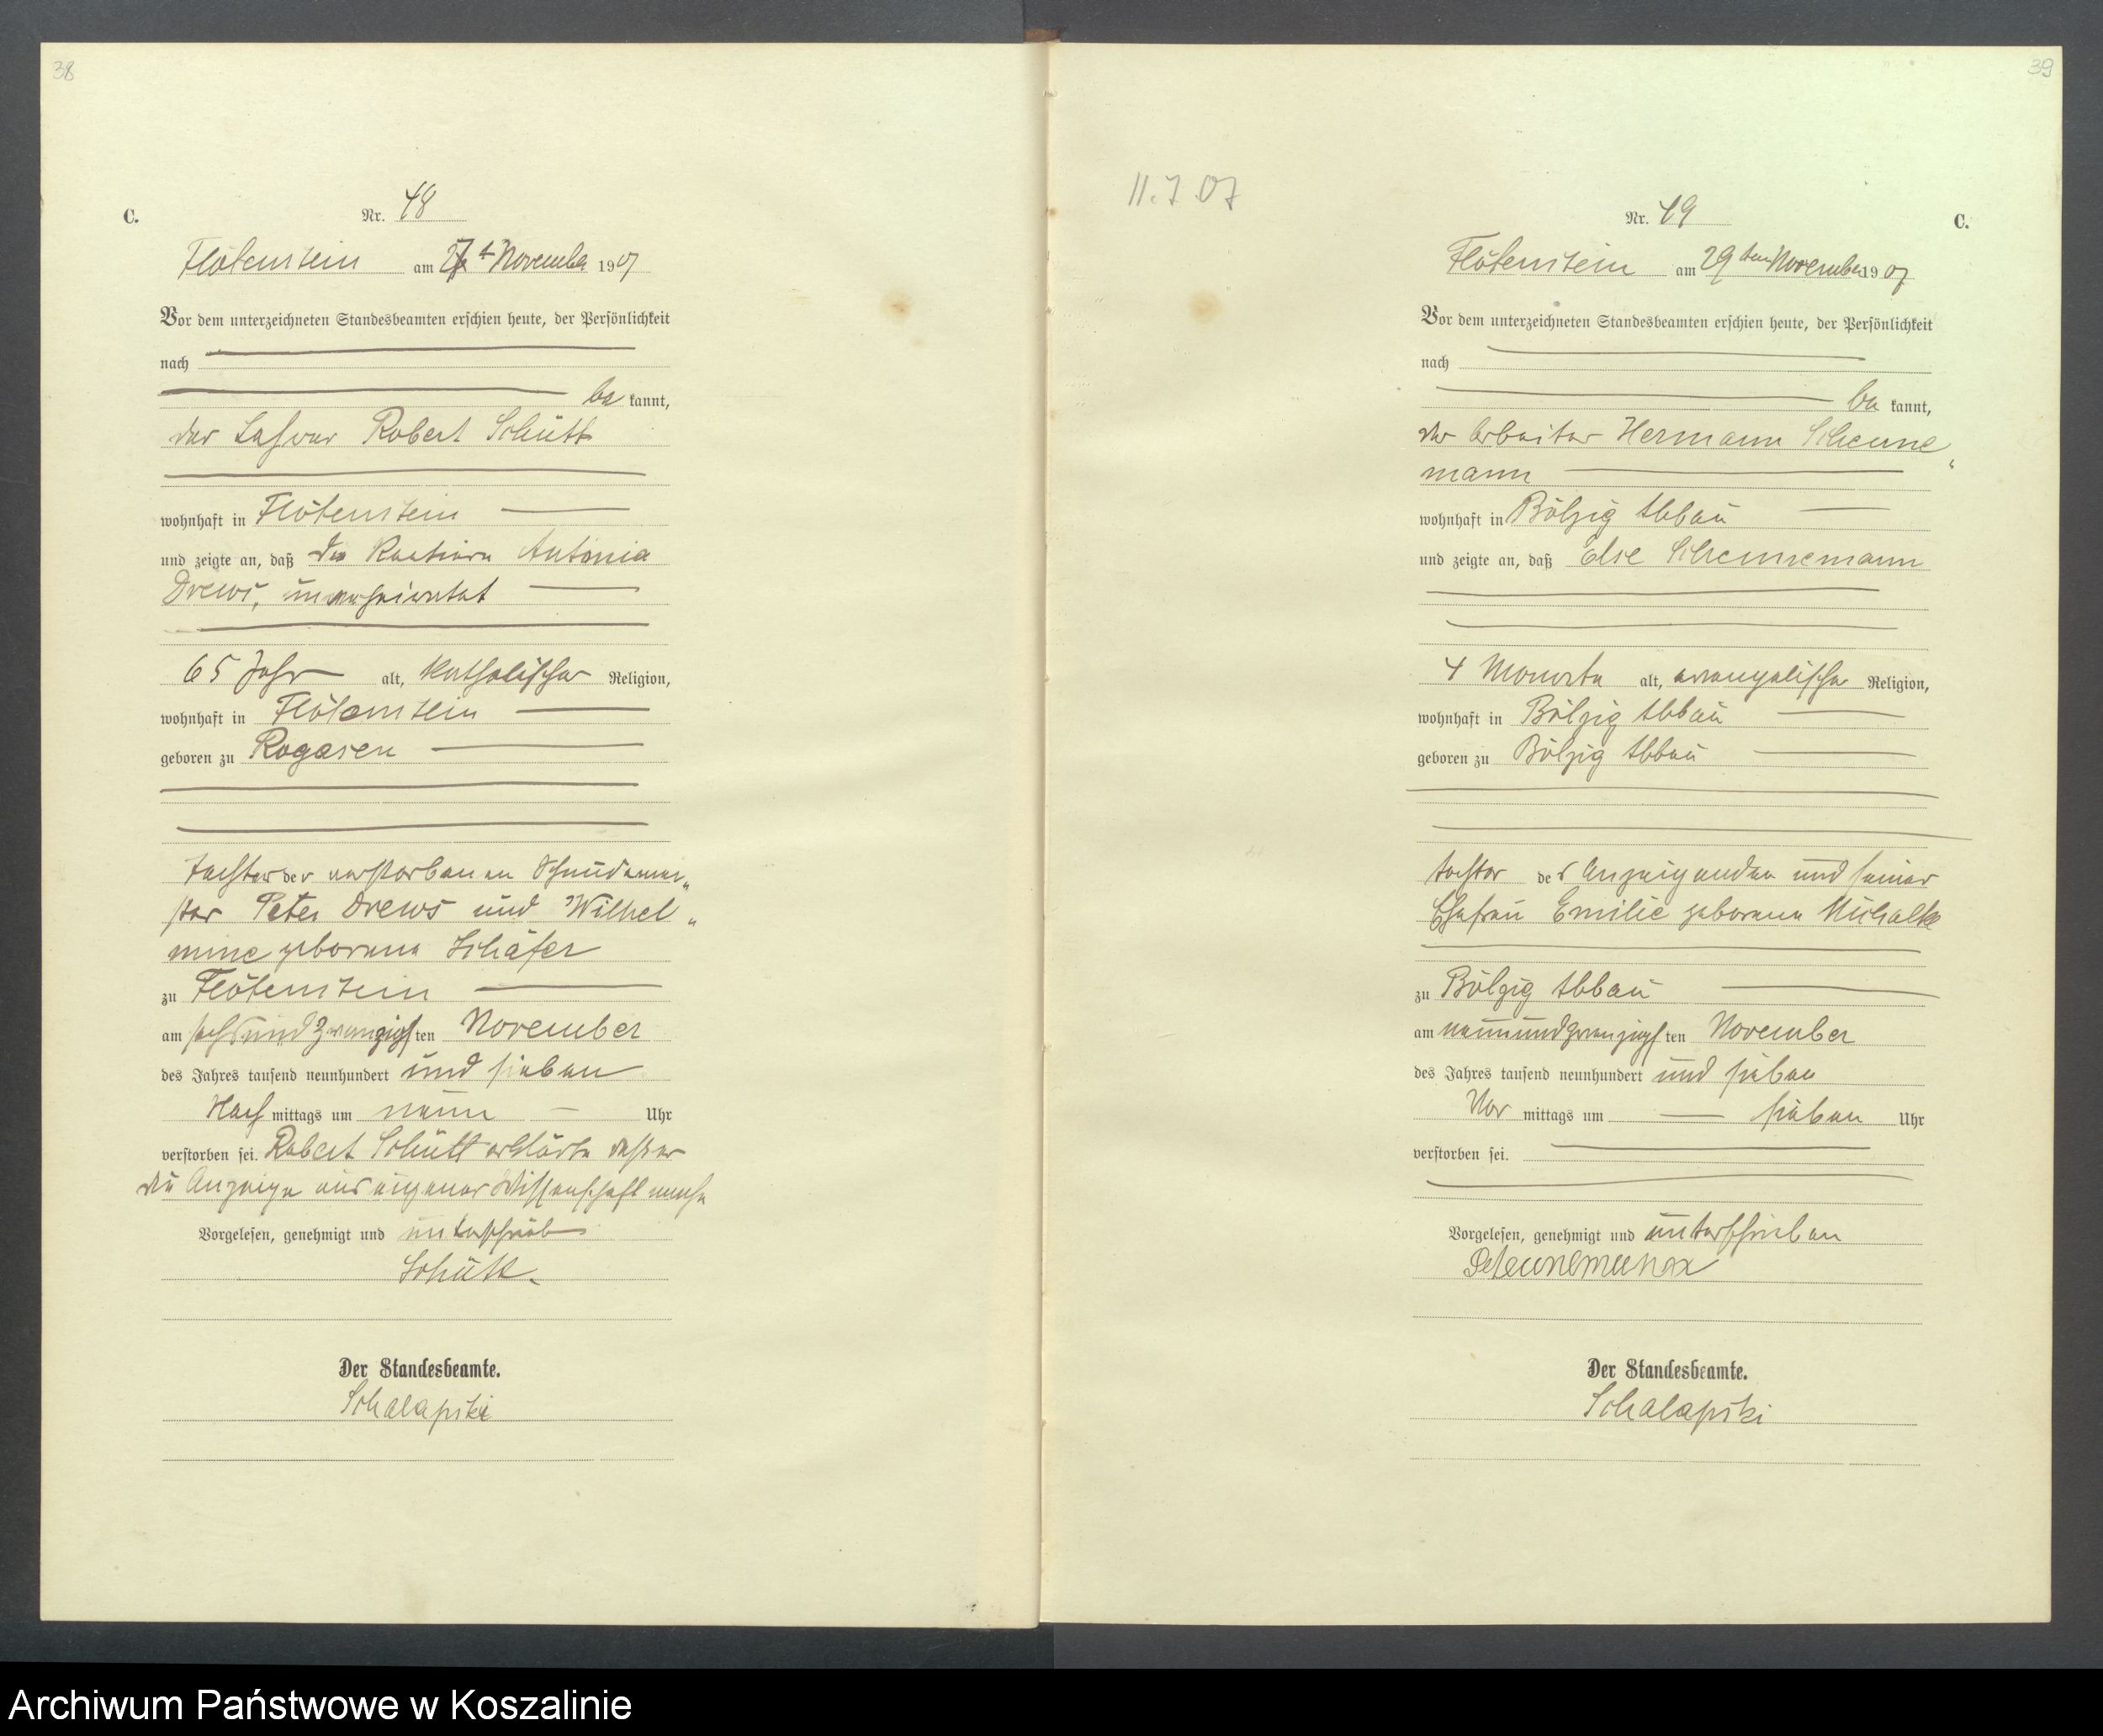 38
C.
Nr. 48
Flötenstein am 27t November 1907
Vor dem unterzeichneten Standesbeamten erschien heute, der Persönlichkeit
nach
be kannt,
der Lehrer Robert Schütt
wohnhaft in Flötenstein
und zeigte an, daß die Rentiere Antonia
Drews, unverheiratet
65 Jahr alt, katholischer Religion,
wohnhaft in Flötenstein
geboren zu Rogasen
Tochter der verstorbenen
Peter Drews und Wilhel„
mine geborene Schäfer
zu Flötenstein
am sechsundzwanzigsten November
des Jahres tausend neunhundert und sieben
Nach mittags um neun Uhr
verstorben sei. Robert Schütt erklärte daß er
die Anzeige aus eigener Wissenschaft mache
Vorgelesen, genehmigt und unterschrieb
Schütt.
Der Standesbeamte.
Schalapski
39
11.7.07
Nr. 49
C.
Flötenstein am 29ten November 1907
Vor dem unterzeichneten Standesbeamten erschien heute, der Persönlichkeit
nach
be kannt,
der Arbeiter Hermann Scheune„
mann
wohnhaft in Bölzig Abbau
und zeigte an, daß Else Scheunemann
4 Monate alt, evangelischer Religion,
wohnhaft in Bölzig Abbau
geboren zu Bölzig Abbau
Tochter des Anzeigenden und seiner
Ehefrau Emilie geborene
zu Bölzig Abbau
am neunundzwanzigsten November
des Jahres tausend neunhundert und sieben
Vor mittags um sieben Uhr
verstorben sei.
Vorgelesen, genehmigt und unterschrieben
Scheunemann
Der Standesbeamte.
Schalapski
Archiwum Państwowe w Koszalinie